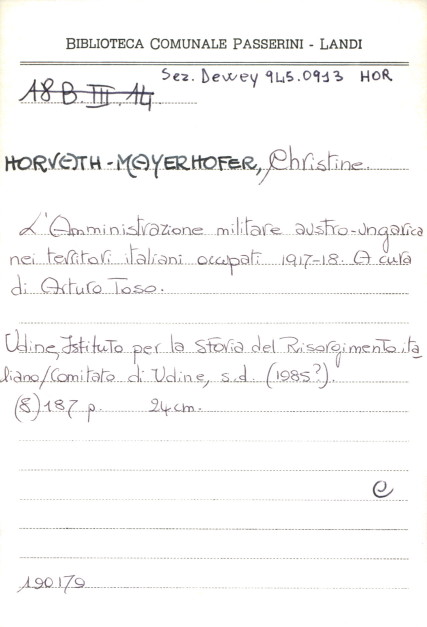 BIBLIOTECA COMUNALE PASSERINI - LANDI
Sez. Dewey 945.0913 HOR
18 B. III. 14
HORVATH-MAYERHOFER, Christine.
L'Amministrazione militare austro-ungarica
nei territori italiani occupati 1917-18. A cura
di Arturo Toso.
Udine, Istituto per la storia del Risorgimento ita
liano/Comitato di Udine, s.d. (1985?).
(8) 187 p. 24 cm.
e
190179